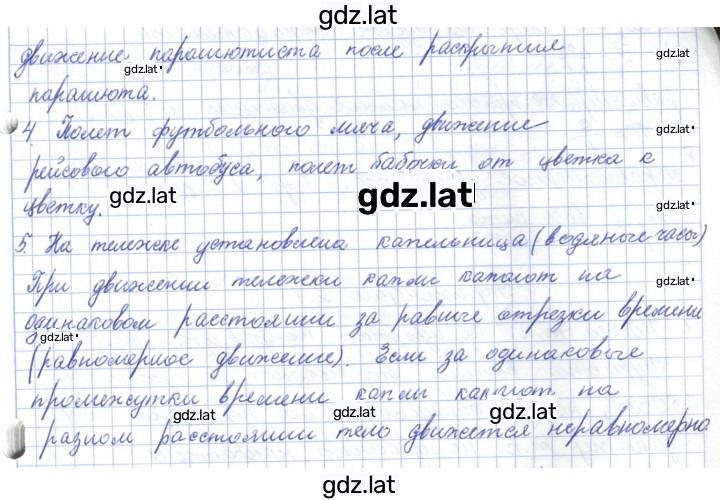 gdz.lat
движение парашютиста после раскрытия
gdz.lat
gdz.lat
парашюта.
4. Полет футбольного мяча, движение
gdz.lat
рейсового автобуса, полет бабочки от цветка к
gdz.lat
gdz.lat
цветку.
gdz.lat
5. На тележке установлена капельница (водяные часы)
При движении тележки капли капают на
gdz.lat
одинаковом расстоянии за равные отрезки времени
gdz.lat
(равномерное движение). Если за одинаковые
промежутки времени капли капают на
gdz.lat
gdz.lat
gdz.lat
gdz.lat
разном расстоянии тело движется неравномерно
gdz.lat